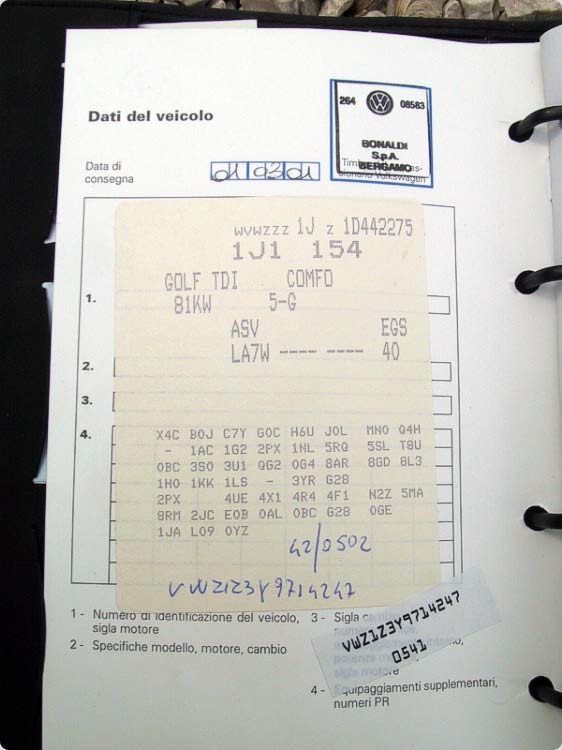 Dati del veicolo
264 08583
BONALDI
S.p.A.
BERGAMO
Data di
consegna
01 03 01
WVWZZZ 1J Z 1D442275
1J1 154
GOLF TDI COMFO
81KW 5-G
1.
ASV EGS
LA7W ---- ---- 40
2.
3.
4.
X4C B0J C7Y G0C H6U J0L MN0 Q4H
- 1AC 1G2 2PX 1NL 5RQ 5SL T8U
0BC 3S0 3U1 QG2 0G4 8AR 8GD 8L3
1H0 1KK 1LS - 3YR G28
2PX 4UE 4X1 4R4 4F1 N2Z 5MA
8RM 2JC E0B 0AL 0BC G28 0GE
1JA L09 0YZ
42/0502
VWZ1Z3Y9714247
VWZ1Z3Y9714247
0541
1 - Numero di identificazione del veicolo,
sigla motore
2 - Specifiche modello, motore, cambio
3 - Sigla
4 - Equipaggiamenti supplementari,
numeri PR